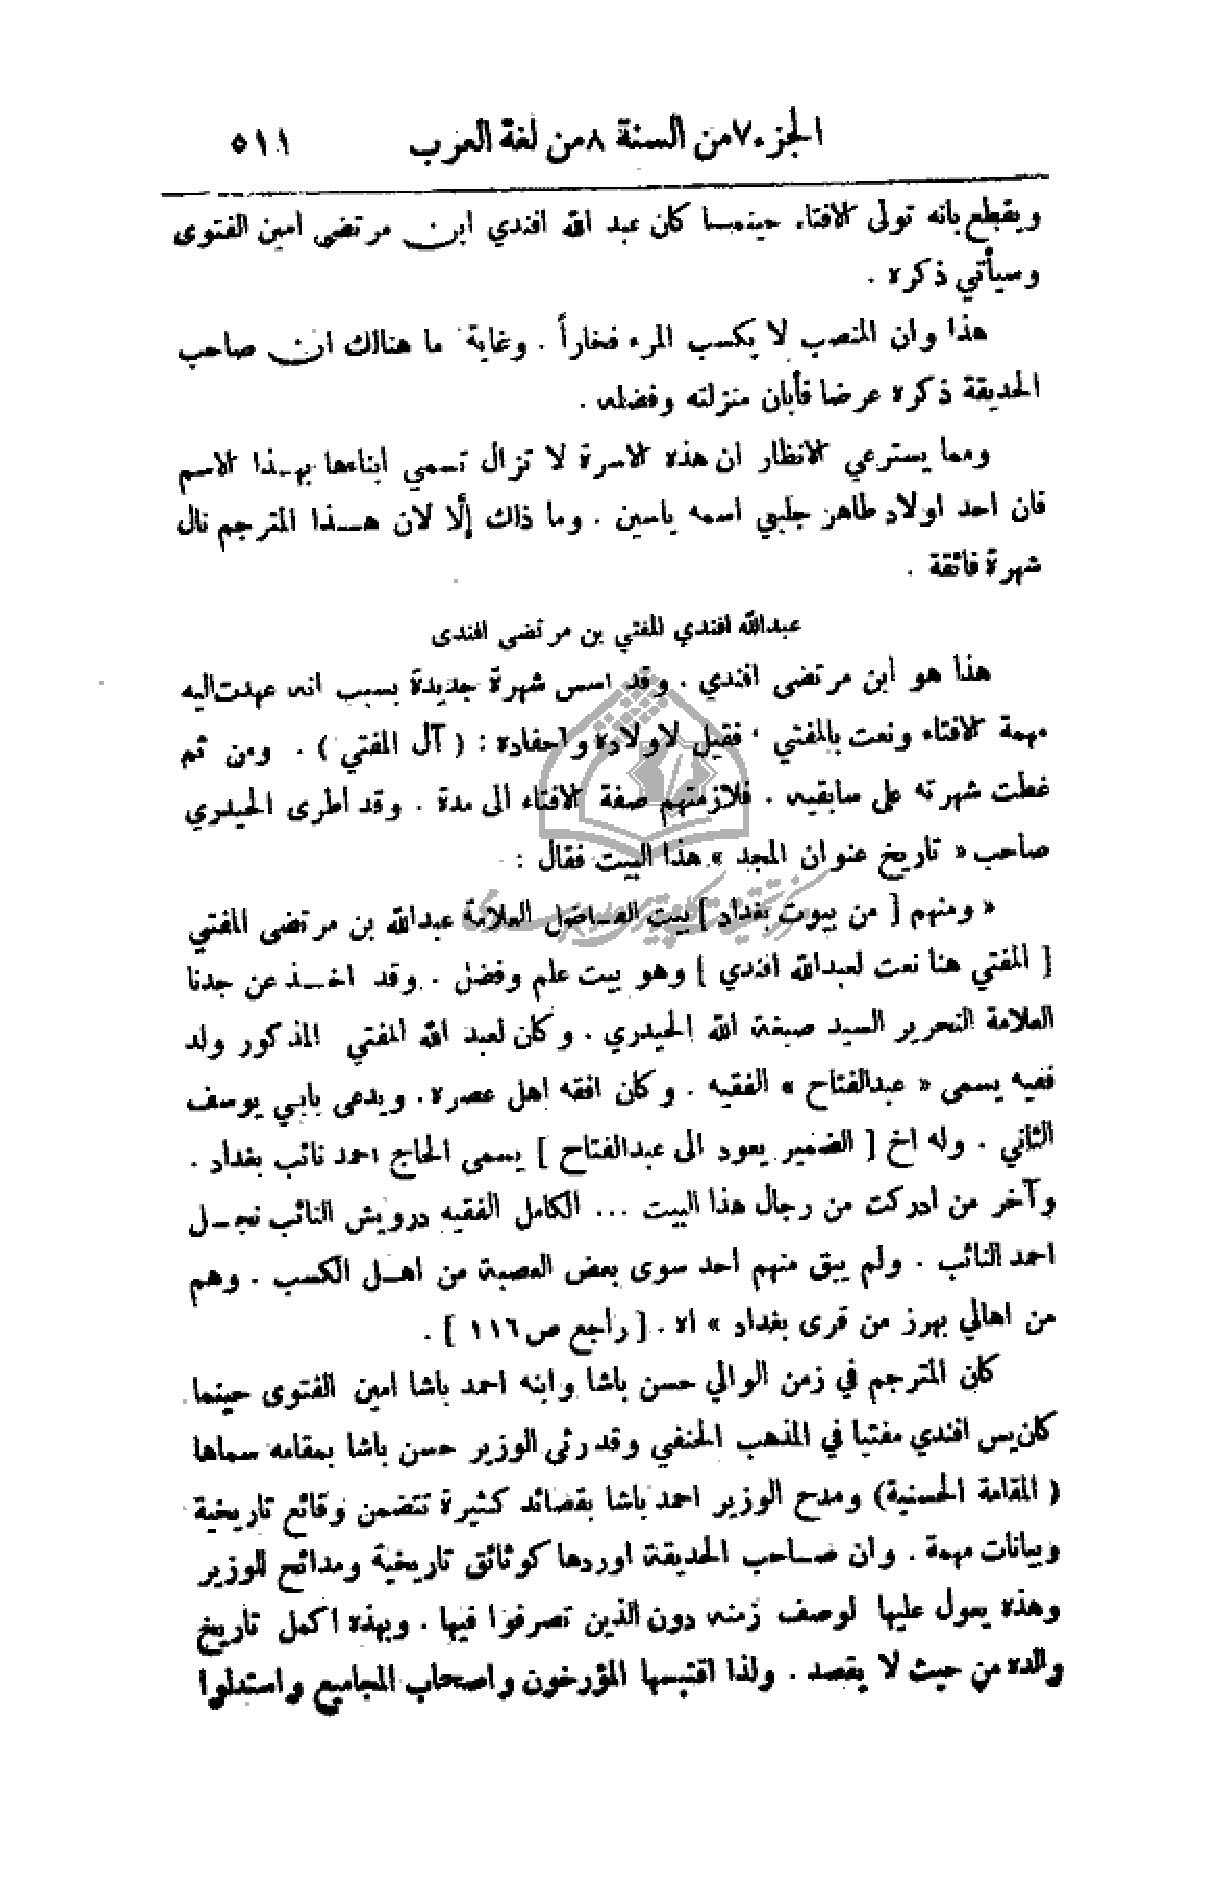 الجزء ٧ من السنة ٨ من لغة العرب ٥١١
ويقطع بانه تولى الافتاء حينمـا كان عبد الله افندي ابن مرتضى امين الفتوى
وسيأتي ذكره .
هذا وان المنصب لا يكسب المرء فخاراً . وغاية ما هنالك ان صاحب
الحديقة ذكره عرضا فأبان منزلته وفضله .
ومما يسترعي الانظار ان هذه الاسرة لا تزال تسمي ابناءها بهـذا الاسم
فان احد اولاد طاهر جلبي اسمه ياسين . وما ذاك إلا لان هـذا المترجم نال
شهرة فائقة .
عبدالله افندي المفتي بن مرتضى افندى
هذا هو ابن مرتضى افندي . وقد اسس شهرة جديدة بسبب انه عهدت اليه
مهمة الافتاء ونعت بالمفتي ، فقيل لاولاده واحفاده : ( آل المفتي ) . ومن ثم
غطت شهرته على سابقيه . فلازمتهم صفة الافتاء الى مدة . وقد اطرى الحيدري
صاحب « تاريخ عنوان المجد » هذا البيت فقال :
« ومنهم [ من بيوت بغداد ] بيت الفـاضل العلامة عبدالله بن مرتضى المفتي
[ المفتي هنا نعت لعبدالله افندي ] وهو بيت علم وفضل . وقد اخـذ عن جدنا
العلامة النحرير السيد صبغة الله الحيدري . وكان لعبد الله المفتي المذكور ولد
فقيه يسمى « عبدالفتاح » الفقيه . وكان افقه اهل عصره . ويدعى بابي يوسف
الثاني . وله اخ [ الضمير يعود الى عبدالفتاح ] يسمى الحاج احمد نائب بغداد .
وآخر من ادركت من رجال هذا البيت ... الكامل الفقيه درويش النائب نجـل
احمد النائب . ولم يبق منهم احد سوى بعض العصبة من اهـل الكسب . وهم
من اهالي بهرز من قرى بغداد » اه . [ راجع ص ١١٦ ] .
كان المترجم في زمن الوالي حسن باشا وابنه احمد باشا امين الفتوى حينما
كان يس افندي مفتيا في المذهب الحنفي وقد رثى الوزير حسن باشا بمقامه سماها
( المقامة الحسنية ) ومدح الوزير احمد باشا بقصائد كثيرة تتضمن وقائع تاريخية
وبيانات مهمة . وان صـاحب الحديقة اوردها كوثائق تاريخية ومدائح للوزير
وهذه يعول عليها لوصف زمنه دون الذين تصرفوا فيها . وبهذه اكمل تاريخ
والده من حيث لا يقصد . ولذا اقتبسها المؤرخون واصحاب المجاميع واستدلوا